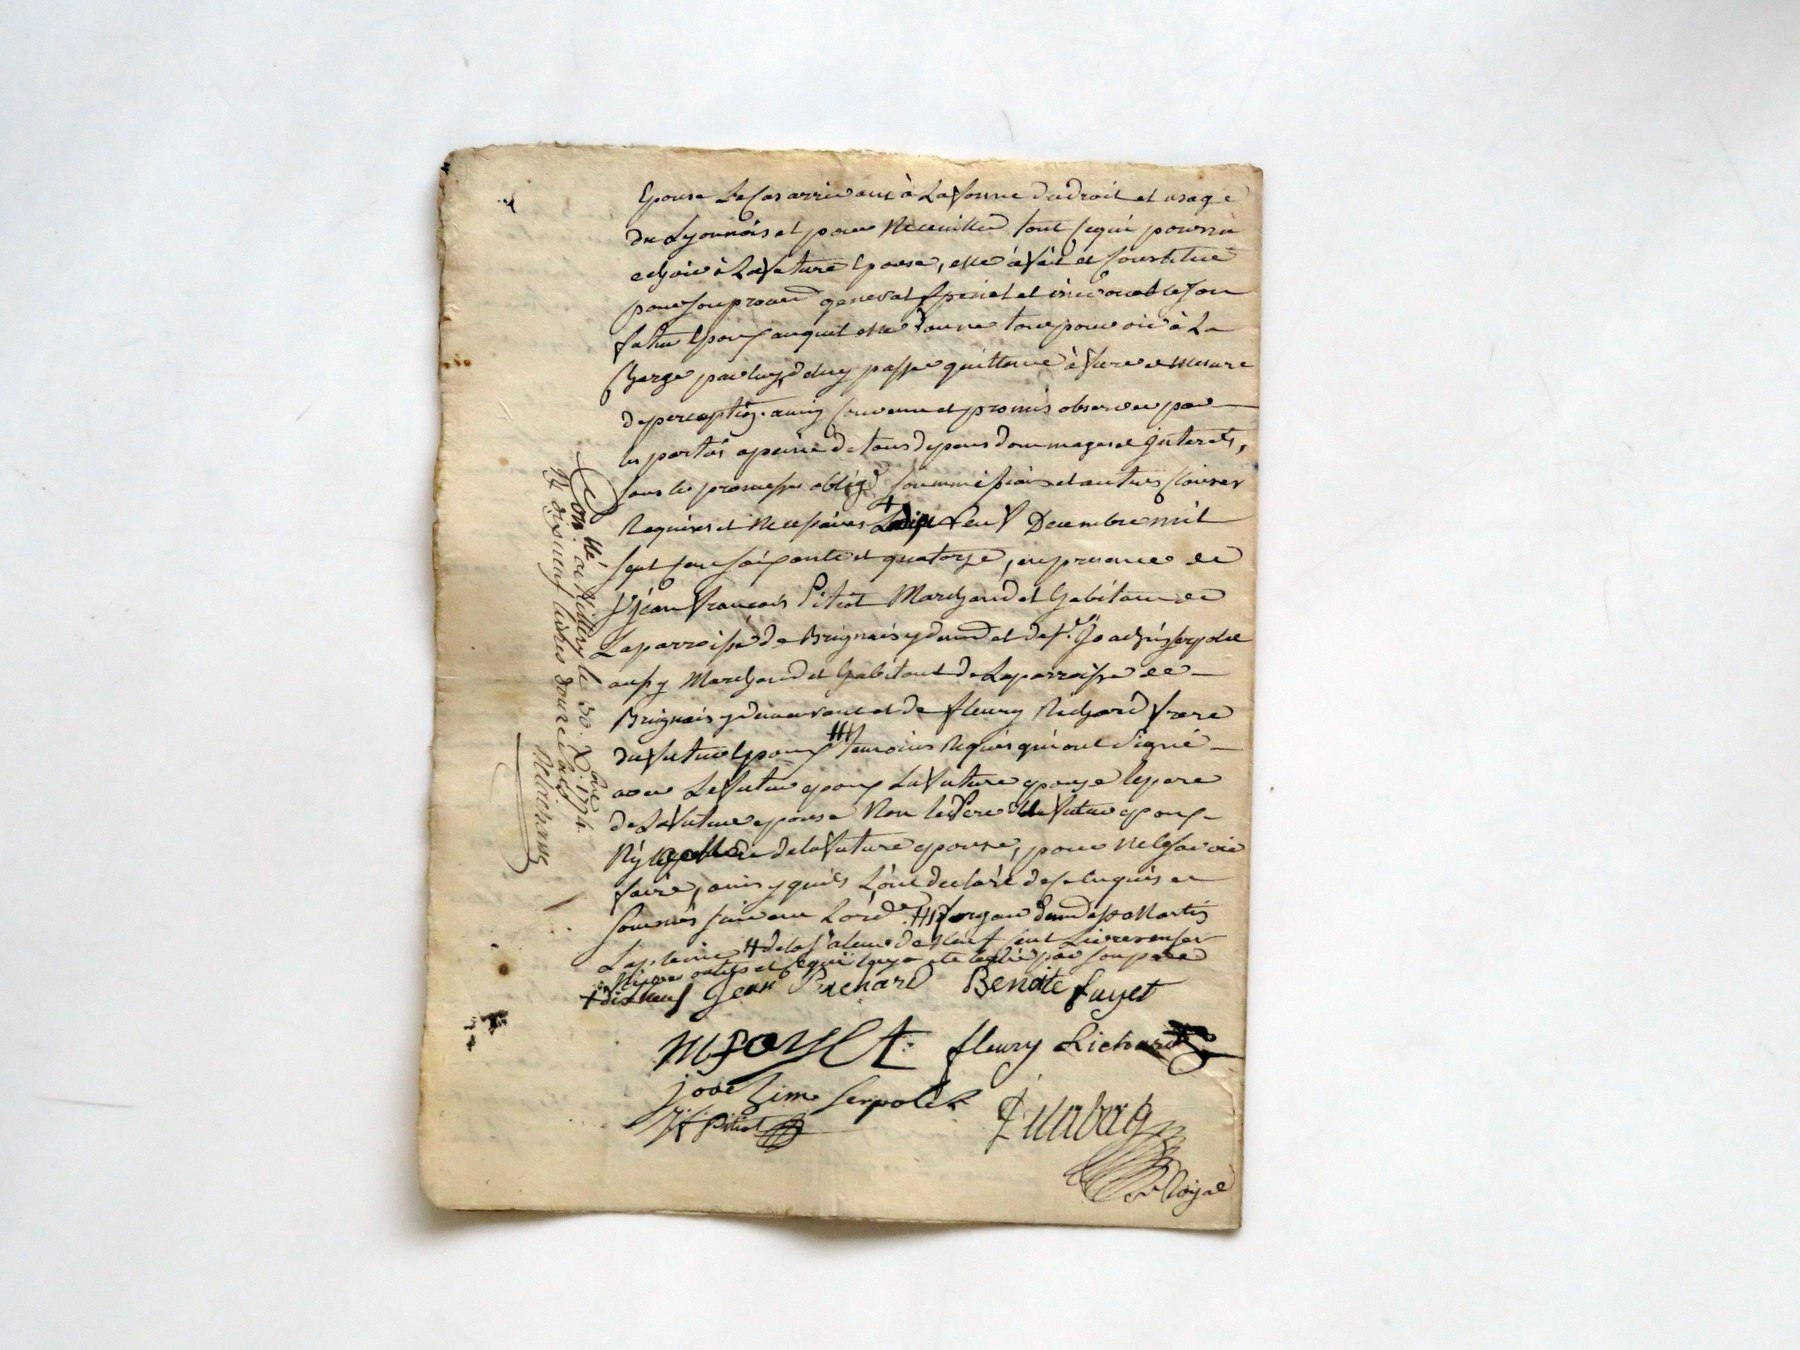 Epouse Le Cas arrivant à La forme du droit et usage
du Lyonnois et pour Recueillir tout ce qui pourra
echoir à La future Epouse, elle à fait et Constitué
pour son procur general special et irrevocable son
futur Epoux auquel elle donne tout pouvoir à La
Charge par luy de passer quittance à fure et mesure
de perception. ainsy Convenu et promis observer par
les parties a peine de tous depens dommages et jnterets,
sous les promesses oblig soummissions et autres Clauses
Requises et Necessaires Le Decembre mil
sept cent soixante et quatorze, en presence de
sr jean françois Pitiot Marchand et habitant de
La parroisse de Brignais y demt et de sr. Joachim serpolet
aussy Marchand et habitant de La parroisse de
Brignais y demeurant et de fleury Richard frere
du futur Epoux # temoins Requis qui ont signé
avec Le futur epoux La future epouse le pere
de La future epouse Non le Pere du futur epoux
Ny la mere de la future epouse, pour ne le savoir
faire, ainsy qu'ils L'ont declaré de ce enquis et
sommés suivant L'ord
La plaine # de la valeur de Neuf cent Livres
par son pere
+ dix neuf Jean Richard Benoite fayet
M fayet fleury Richard
joachim serpolet
J f Pitiot
No Royal
Con.llé à Millery le 30. Xbre 1774.
Rt dix neuf livres douze sols